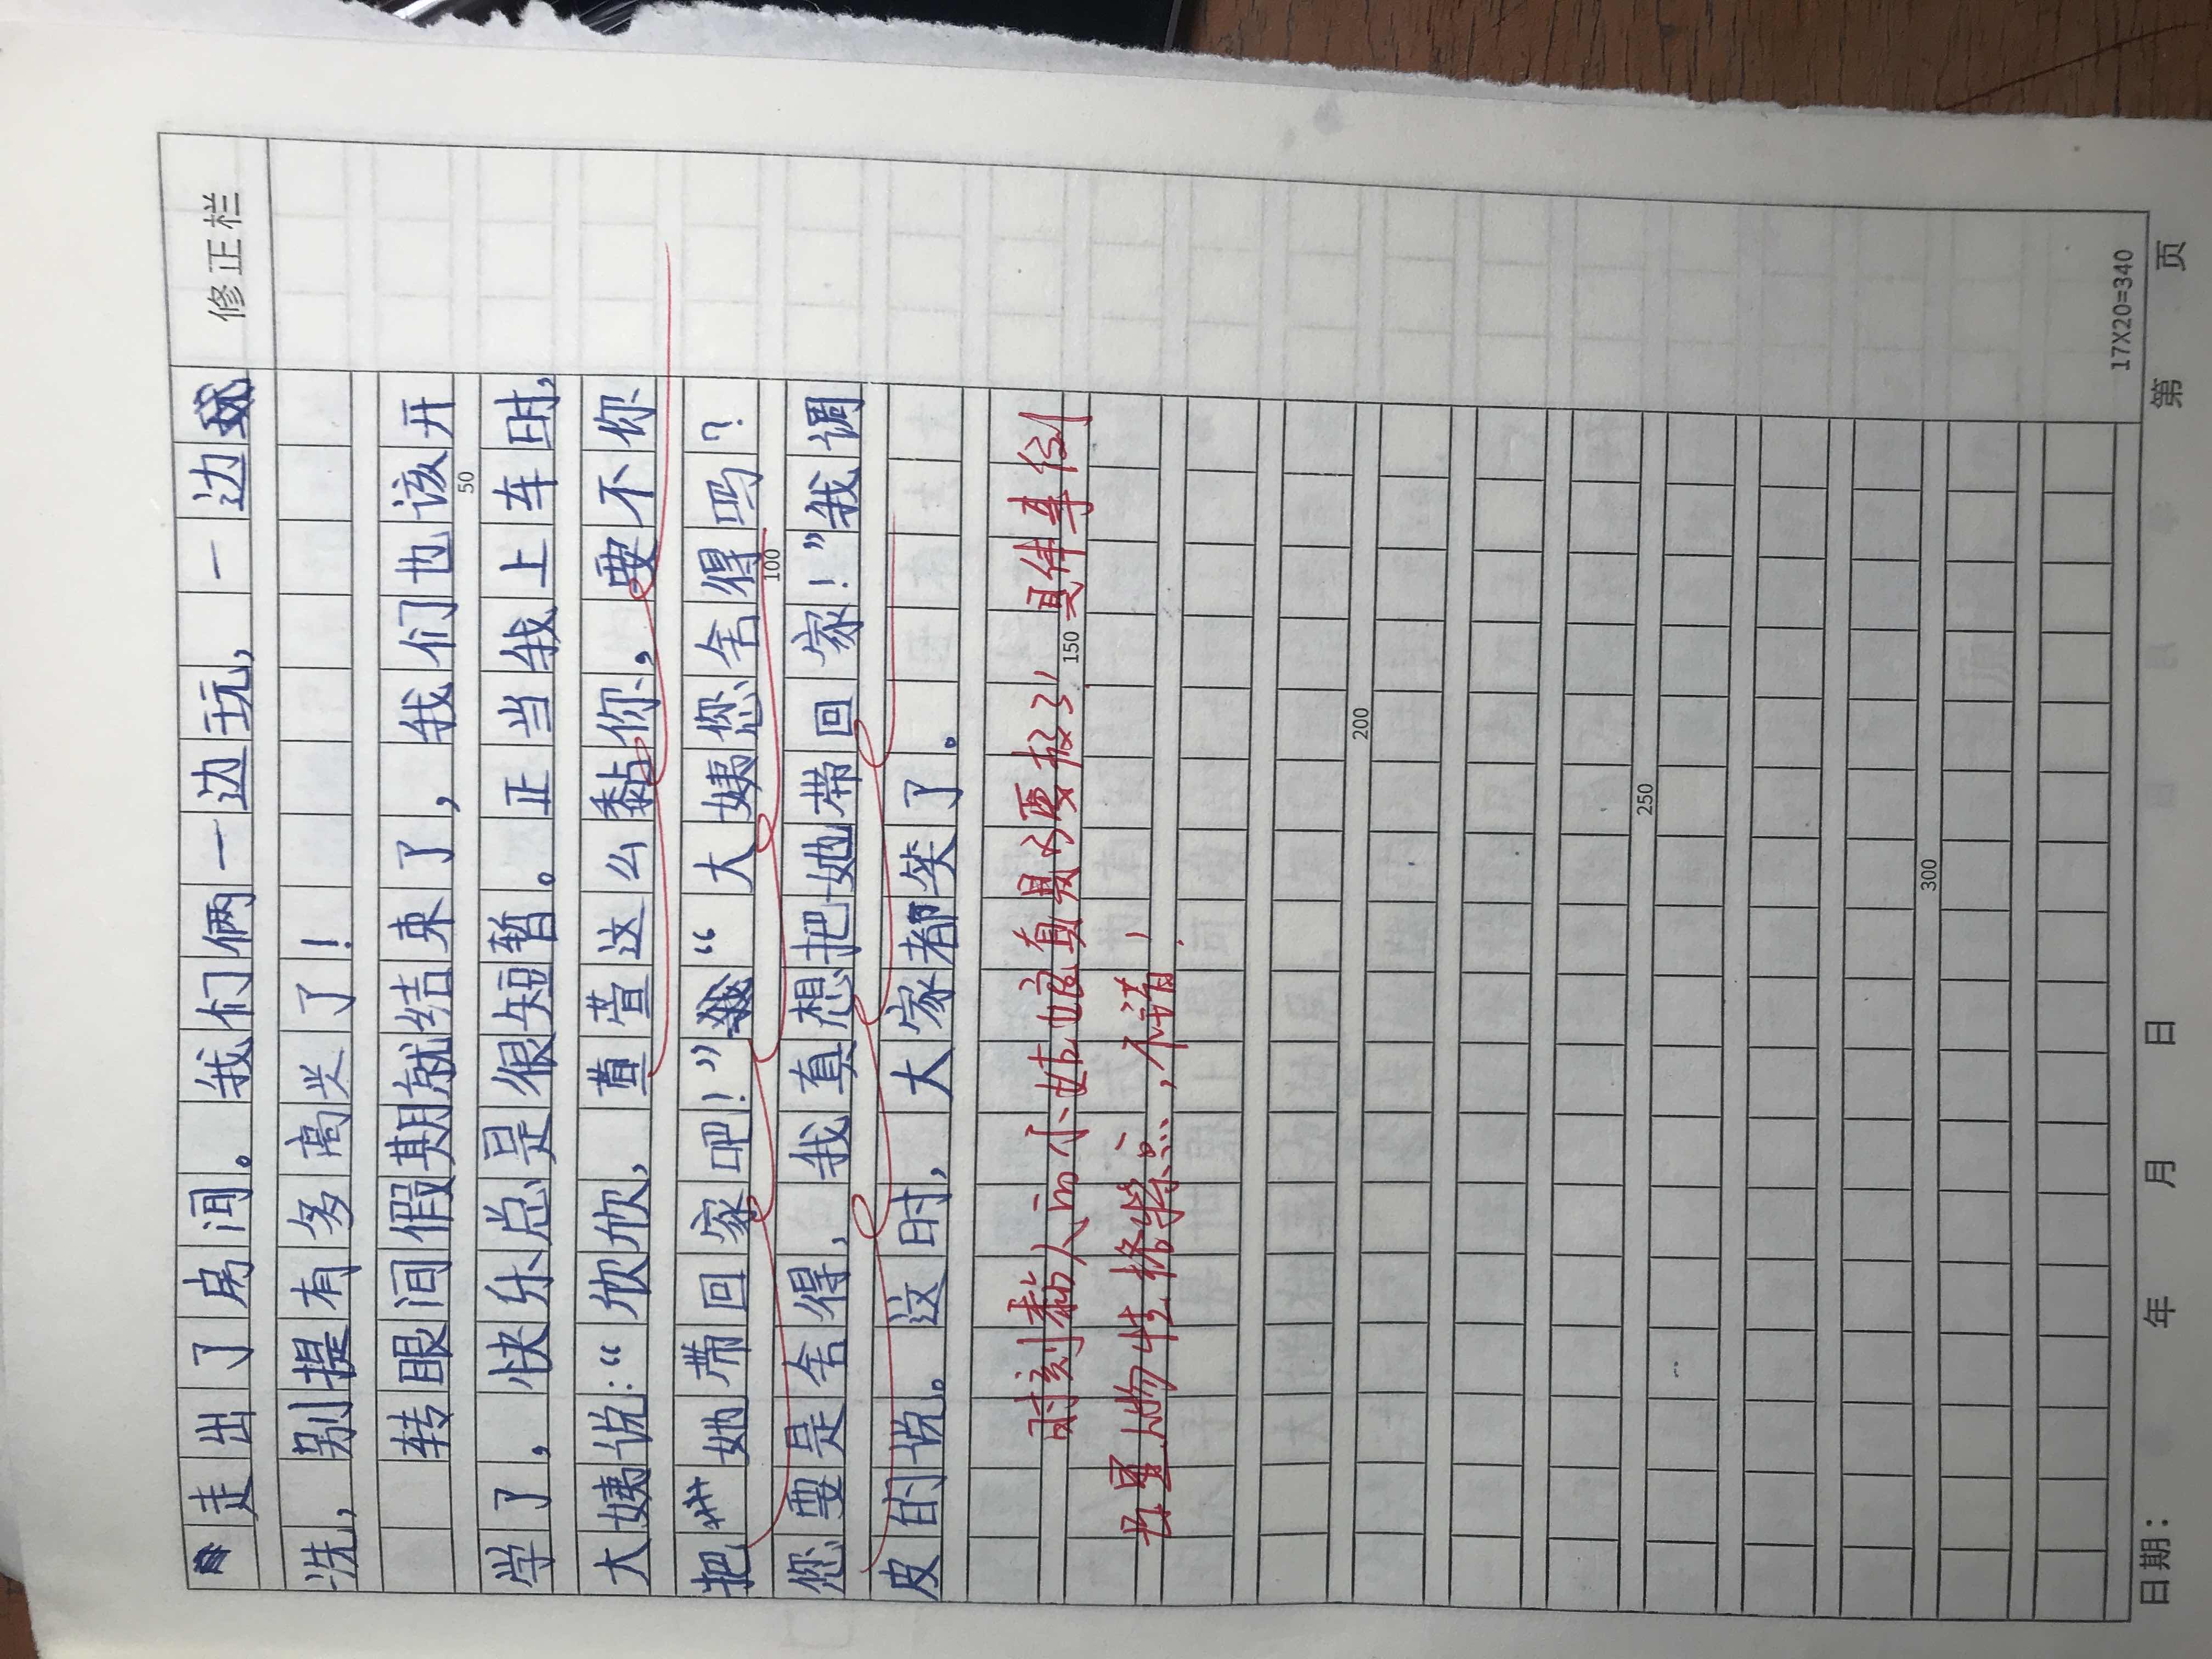 修正栏
走出了房间。我们俩一边玩，一边
洗，别提有多高兴了！
转眼间假期就结束了，我们也该开
50
学了，快乐总是很短暂。正当我上车时，
大姨说：“欣欣，萱萱这么黏你，要不你
把她带回家吧！”“大姨您舍得吗？
100
您要是舍得，我真想把她带回家！”我调
皮的说。这时，大家都笑了。
时刻黏人的小姑娘真是可爱极了！具体事例
150
凸显人物性格特点，不错！
200
250
300
17X20=340
日期： 年 月 日 第 页